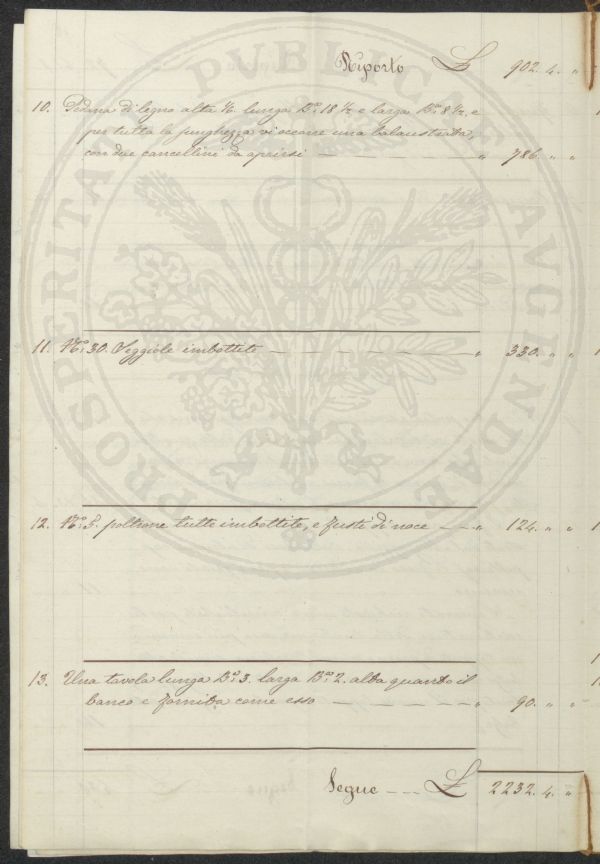 Riporto £ 902. 4. "
10. Pedana di legno alta ½. lunga B.a 18 ½ e larga B.a 8 ½. e
per tutta la lunghezza vi occorre una balaustrata,
con due cancellini da aprirsi — " 786. " "
11. N.o 30. Seggiole imbottite — " 330. " "
12. N.o 5. poltrone tutte imbottite, e fusti di noce — " 124. " "
13. Una tavola lunga B.a 3. larga B.a 2. alta quanto il
banco e fornita come esso — " 90. " "
Segue — £ 2232. 4. "
PROSPERITATI PUBLICAE AUGENDAE